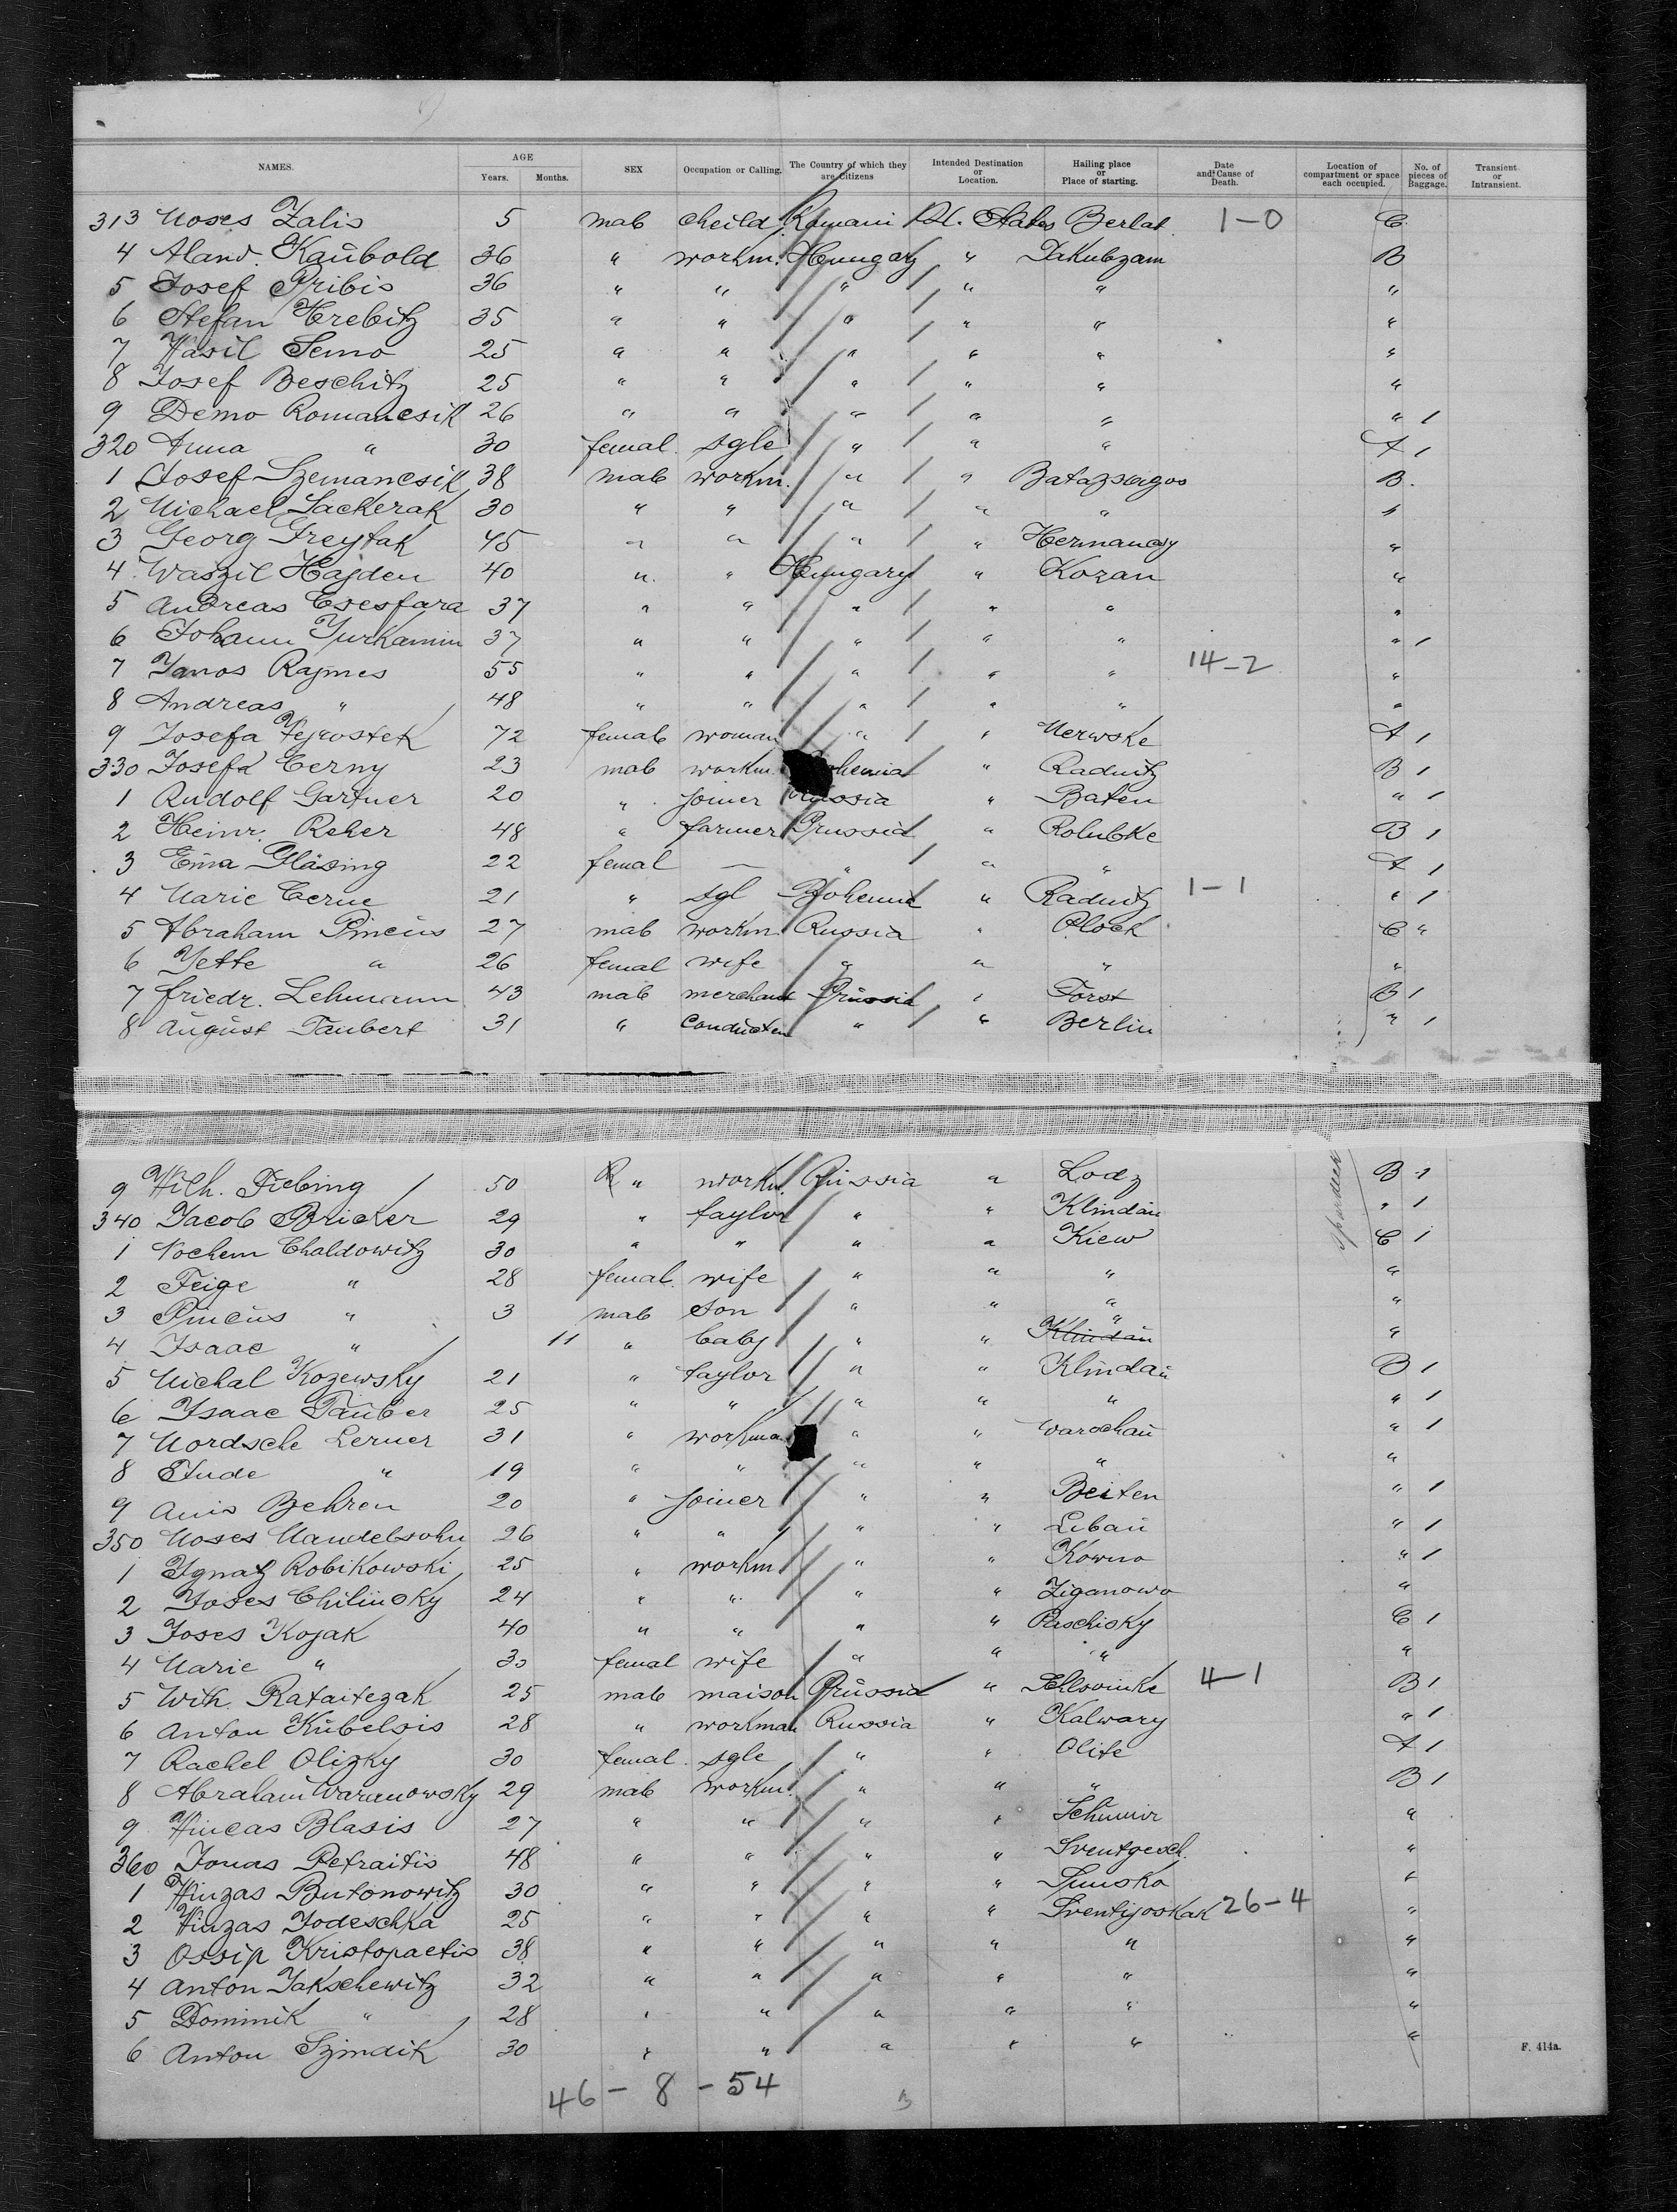 NAMES. AGE Years. Months. SEX Occupation or Calling. The Country of which they are Citizens Intended Destination or Location. Hailing place or Place of starting. Date and Cause of Death. Location of compartment or space each occupied. No. of pieces of Baggage. Transient or Intransient.
313 Moses Zalis 5 male cheild Romani U. States Berlat 1-0 C
4 Aland. Kaŭbold 36 " workm. Hungary " Jakubzam B
5 Josef Pribis 36 " " " " " "
6 Stefan Hrebitz 35 " " " " " "
7 Wasil Semo 25 " " " " " "
8 Josef Beschitz 25 " " " " " "
9 Demo Romancsik 26 " " " " " " 1
320 Anna " 30 femal. sgle " " " A 1
1 Josef Szemancsik 38 male workm. " " B.
2 Michael Sackerak 30 " " " " " "
3 Georg Greytak 45 " " " " "
4 Waszil Hajden 40 " " Hungary " Kozan "
5 Andreas Csesfara 37 " " " " " "
6 Johann Yurkamin 37 " " " " " " 1
7 Janos Rajmes 55 " " " " " 14-2 "
8 Andreas " 48 " " " " " "
9 Josefa 72 female woman " " Merwske A 1
330 Josefa Cerny 23 male workm. Bohemia " Radnitz B 1
1 Rudolf Gartner 20 " Joiner Russia " Baten " 1
2 Heinr. Reher 48 " farmer Prussia " Rolubke B 1
3 Em̄a Gläsing 22 femal — " " " A 1
4 Marie Cerne 21 " sgl Bohemia " Radnitz 1-1 " 1
5 Abraham Pincŭs 27 male workm Russia " Plock C "
6 Yette " 26 femal wife " " " "
7 friedr. Lehmann 43 male merchant Prŭssia " Forst B 1
8 Aŭgŭst Taubert 31 " Condŭcteu " " Berlin " 1
9 Wilh. Fiebing 50 " workm. Rŭssia " Lodz B 1
340 Jacob Bricker 29 " taylor " " Klindaŭ " 1
1 Nochem Chaldowitz 30 " " " " Kiew C 1
2 Feige " 28 femal. wife " " " "
3 Pincŭs " 3 male son " " " "
4 Isaac " 11 " baby " " Klindaŭ " "
5 Michal Kozewsky 21 " taylor " " Klindaŭ B 1
6 Isaac Taŭber 25 " " " " " " 1
7 Mordsche Lerner 31 " workma " " Warschaŭ " 1
8 Etude " 19 " " " " " "
9 Anis Behren 20 " Joiner " " Beiten " 1
350 Moses Mandelsohn 26 " " " " Libaŭ " 1
1 Ignatz Robikowski 25 " workm " " Kowno " 1
2 Joses Chilinsky 24 " " " " Ziganowo "
3 Joses Kojak 40 " " " " Puschisky C 1
4 Marie " 30 femal wife " " " "
5 With Rataitezak 25 male maison Prŭssia " 4-1 B 1
6 Anton Kŭbelsis 28 " workman Russia " Kalwary " 1
7 Rachel Olizky 30 femal. sgle " " Olite A 1
8 Abraham Waranowsky 29 male workm. " " " B 1
9 Wincas Blasis 27 " " " " "
360 Jonas Petraitis 48 " " " " Sventgesch. "
1 Winzas Butonowitz 30 " " " " Sunska "
2 Winzas Jodeschka 25 " " " " Sventijoskak 26-4 "
3 Ossip Kristopaetis 38 " " " " " "
4 Anton Jakschewitz 32 " " " " " "
5 Dominik " 28 " " " " " "
6 Anton Szindik 30 " " " " " "
F. 414a.
46 - 8 - 54